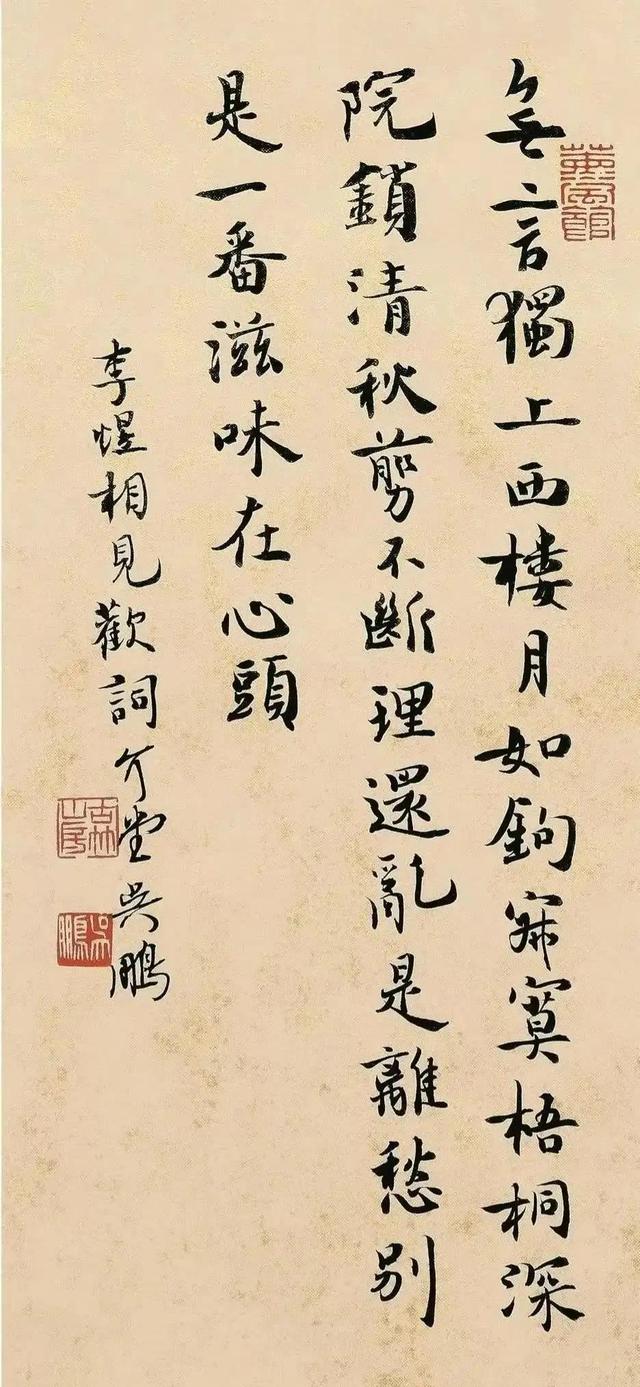 無言獨上西樓月如鉤寂寞梧桐深
院鎖清秋剪不斷理還亂是離愁別
是一番滋味在心頭
李煜相見歡詞介堂吳鵬
吳鵬